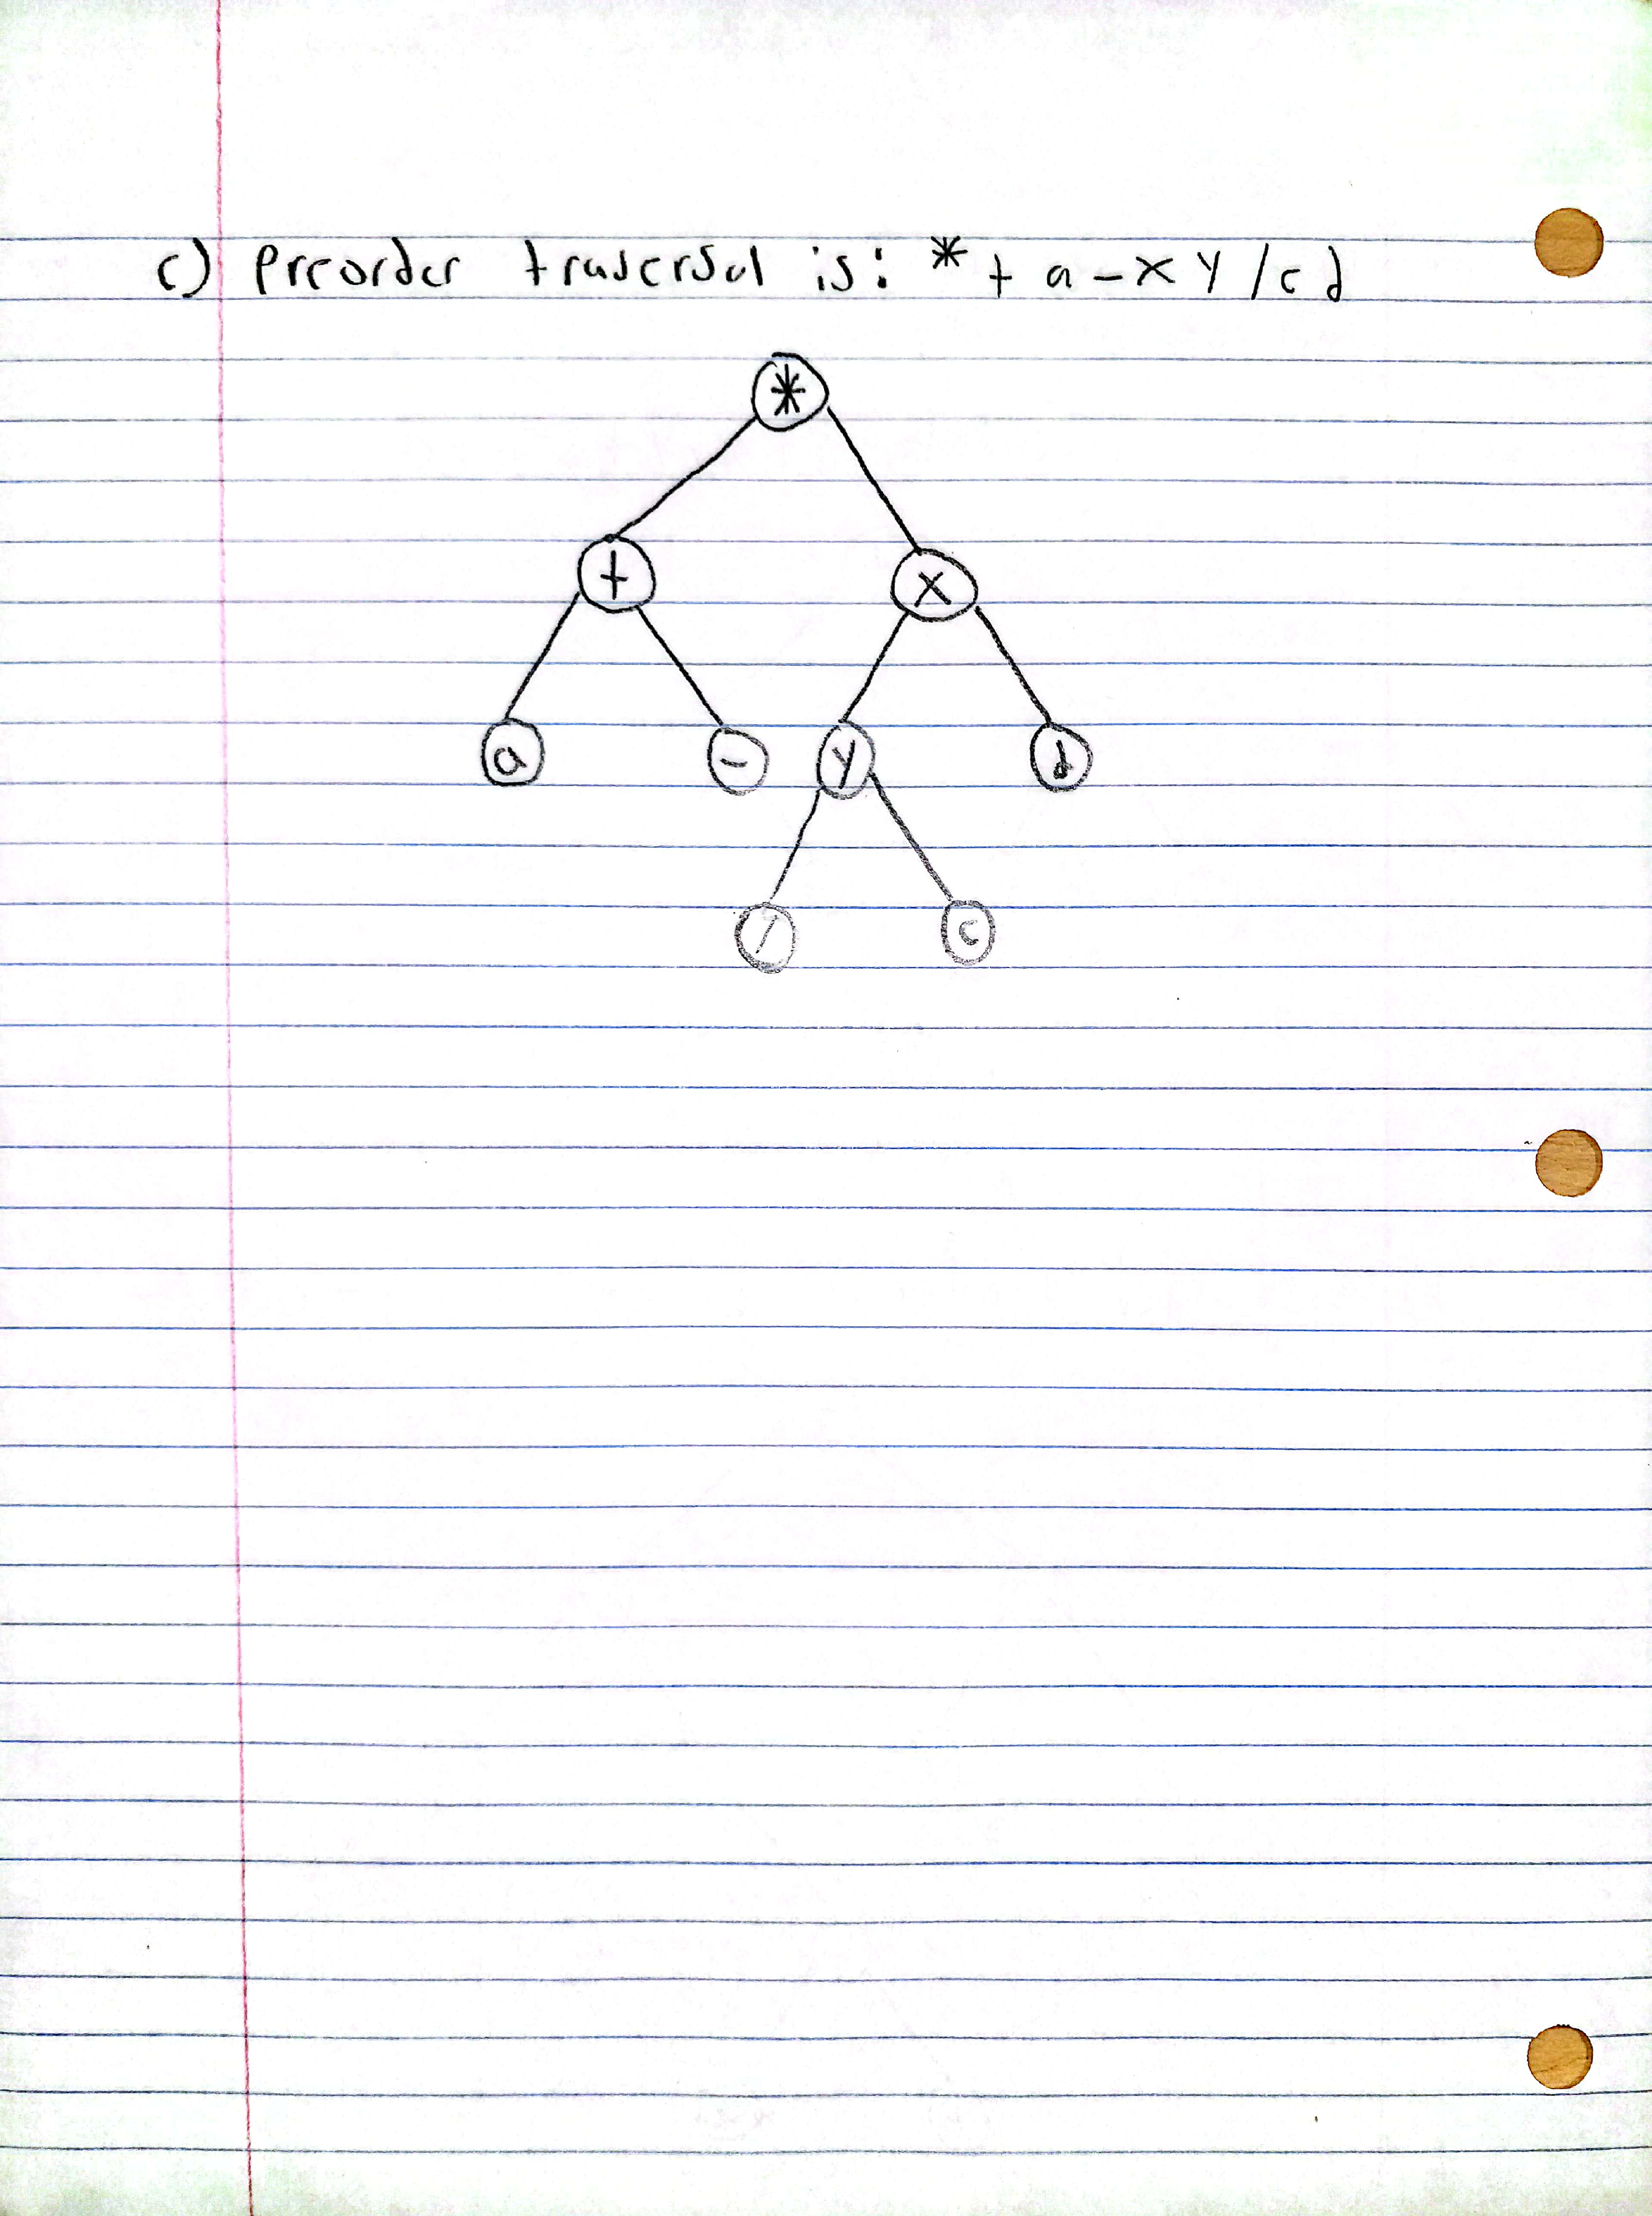 c) Preorder traversal is: * + a - x y / c d
*
+ x
a - y d
/ c